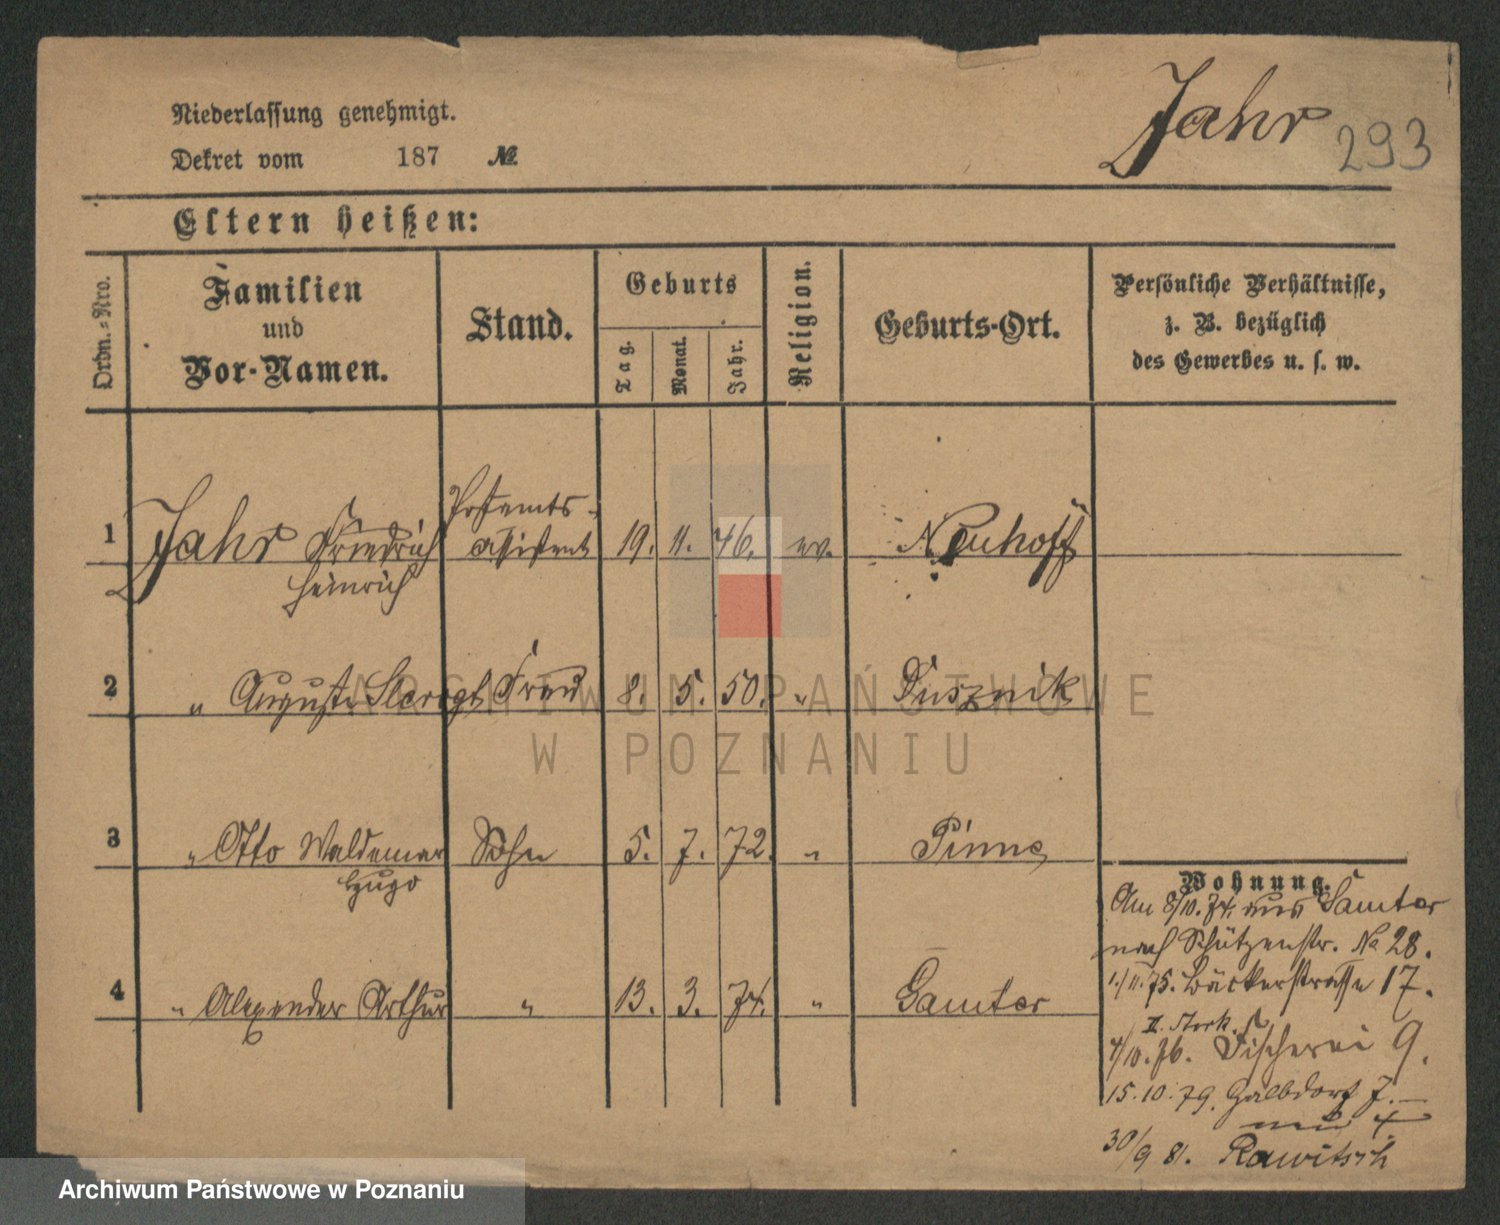 Niederlassung genehmigt.
Dekret vom 187 №
Jahr 293
Eltern heißen:
Ordn.-Nro.
Familien
und
Vor-Namen.
Stand.
Geburts
Tag.
Monat.
Jahr.
Religion.
Geburts-Ort.
Persönliche Verhältnisse,
z. B. bezüglich
des Gewerbes u. s. w.
1 Jahr Friedrich Heinrich Postamts-assistent 19. 11. 46. ev. Neuhoff
2 " Auguste Frau 8. 5. 50. " Dusznik
3 " Otto Waldemar Hugo Sohn 5. 7. 72. " Pinne
4 " Alexander Arthur " 13. 3. 74. " Samter
Wohnung.
Am 8/10. 74. aus Samter
nach Schützenstr. No 28.
1./11. 75. Bäckerstrasse 17.
II. Stock.
4/10. 76. Fischerei 9.
15. 10. 79. Halbdorf 7.
30/9 81. Rawitsch
ARCHIWUM PAŃSTWOWE
W POZNANIU
Archiwum Państwowe w Poznaniu